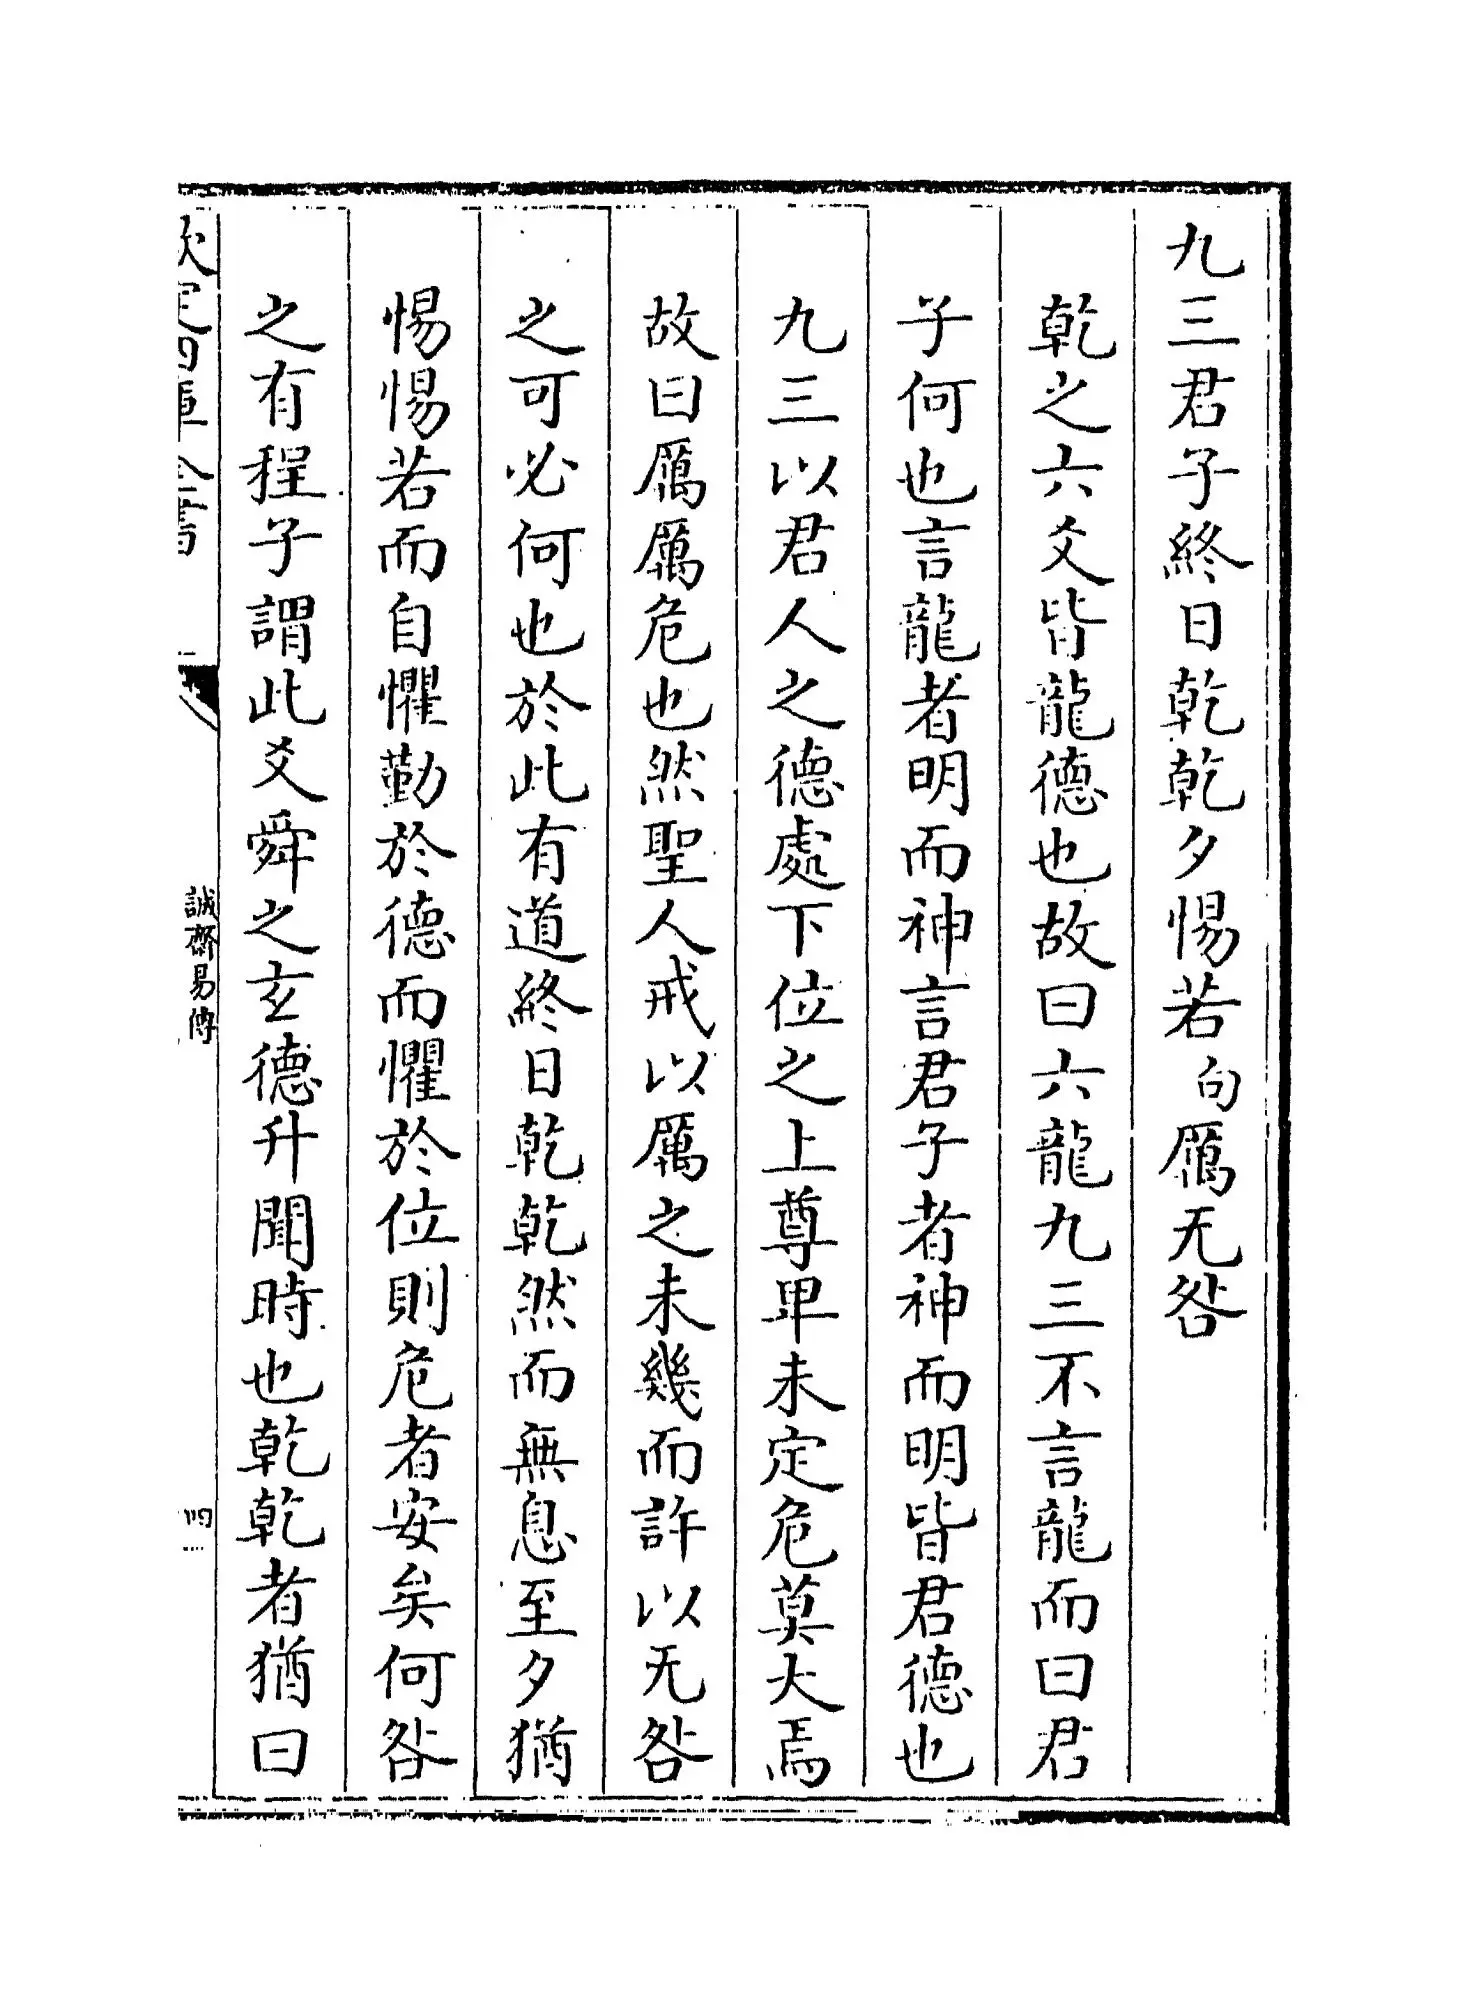 九三君子終日乾乾夕惕若句厲无咎
乾之六爻皆龍德也故曰六龍九三不言龍而曰君
子何也言龍者明而神言君子者神而明皆君德也
九三以君人之德處下位之上尊卑未定危莫大焉
故曰厲厲危也然聖人戒以厲之未幾而許以无咎
之可必何也於此有道終日乾乾然而無息至夕猶
惕惕若而自懼勤於德而懼於位則危者安矣何咎
之有程子謂此爻舜之玄德升聞時也乾乾者猶曰
欽定四庫全書
誠齋易傳
四